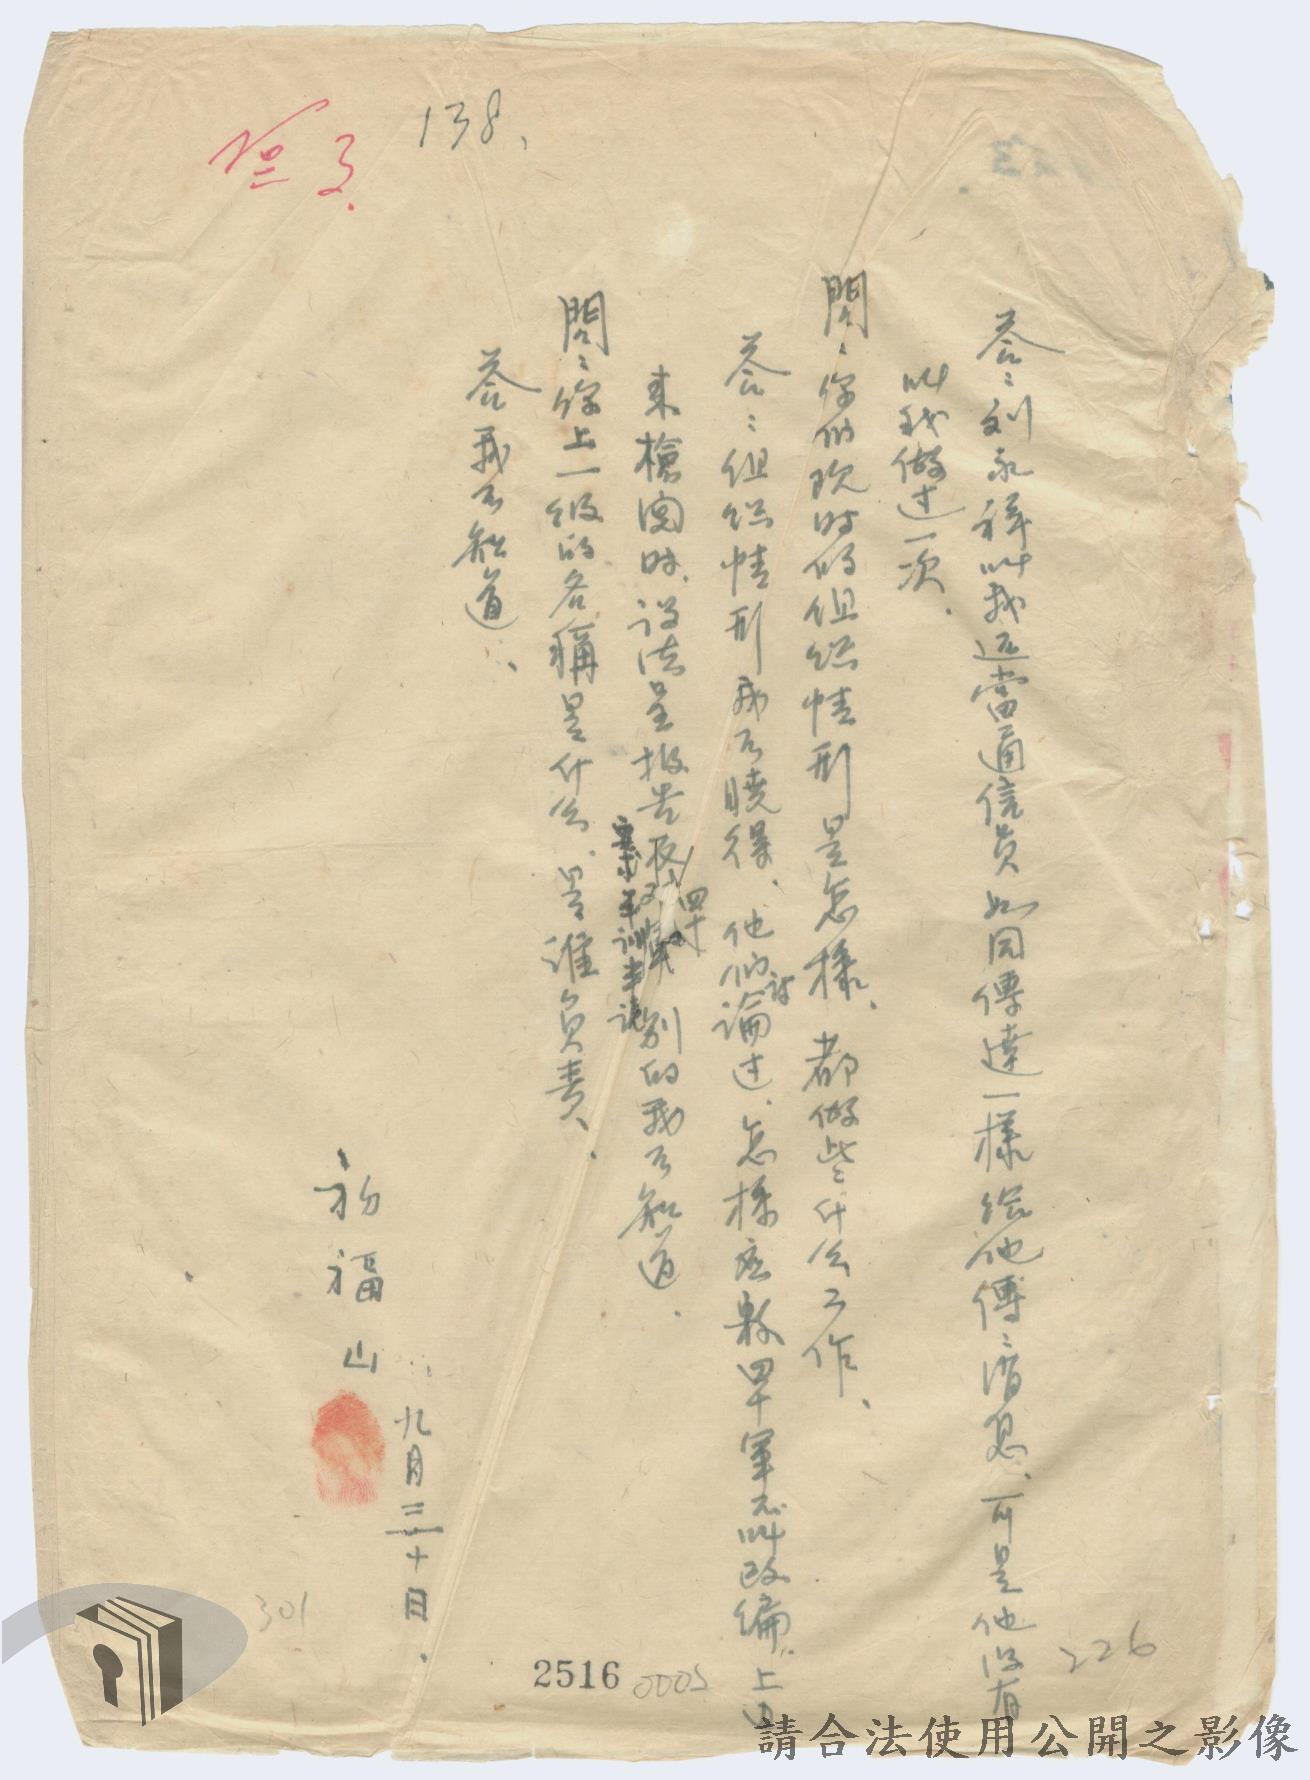 138.
答:刘永祥叫我还當通信員如同傳達一樣給他傳:消息、可是他没有
叫我做过一次.
問:你们现时的组织情形是怎樣、都做些什么工作、
答:组织情形我不曉得、他们討論过、怎樣應敷四十軍不叫改编、上边
来檢閱时、设法呈报告 四十 别的我不知道.
問:你上一级的名稱是什么、是谁负责、
答我不知道、
初福山
九月三十日.
301
2516
0005
226
請合法使用公開之影像